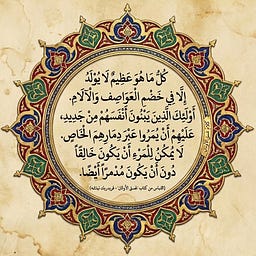 كُلُّ مَا هُوَ عَظِيمٌ لَا يُولَدُ
إِلَّا فِي خَضْمِ الْعَوَاصِفِ وَالْآلَامِ.
أُولَئِكَ الَّذِينَ يَبْنُونَ أَنْفُسَهُمْ مِنْ جَدِيدٍ،
عَلَيْهِمْ أَنْ يُمَرُوا عَبْرَ دِمَارِهِمُ الْخَاصِ.
لَا يُمْكِنُ لِلْمَرْءِ أَنْ يَكُونَ خَالِقًا
دُونَ أَنْ يَكُونَ مُدَمِّرًا أَيْضًا.
- فريدريك نيتشه)